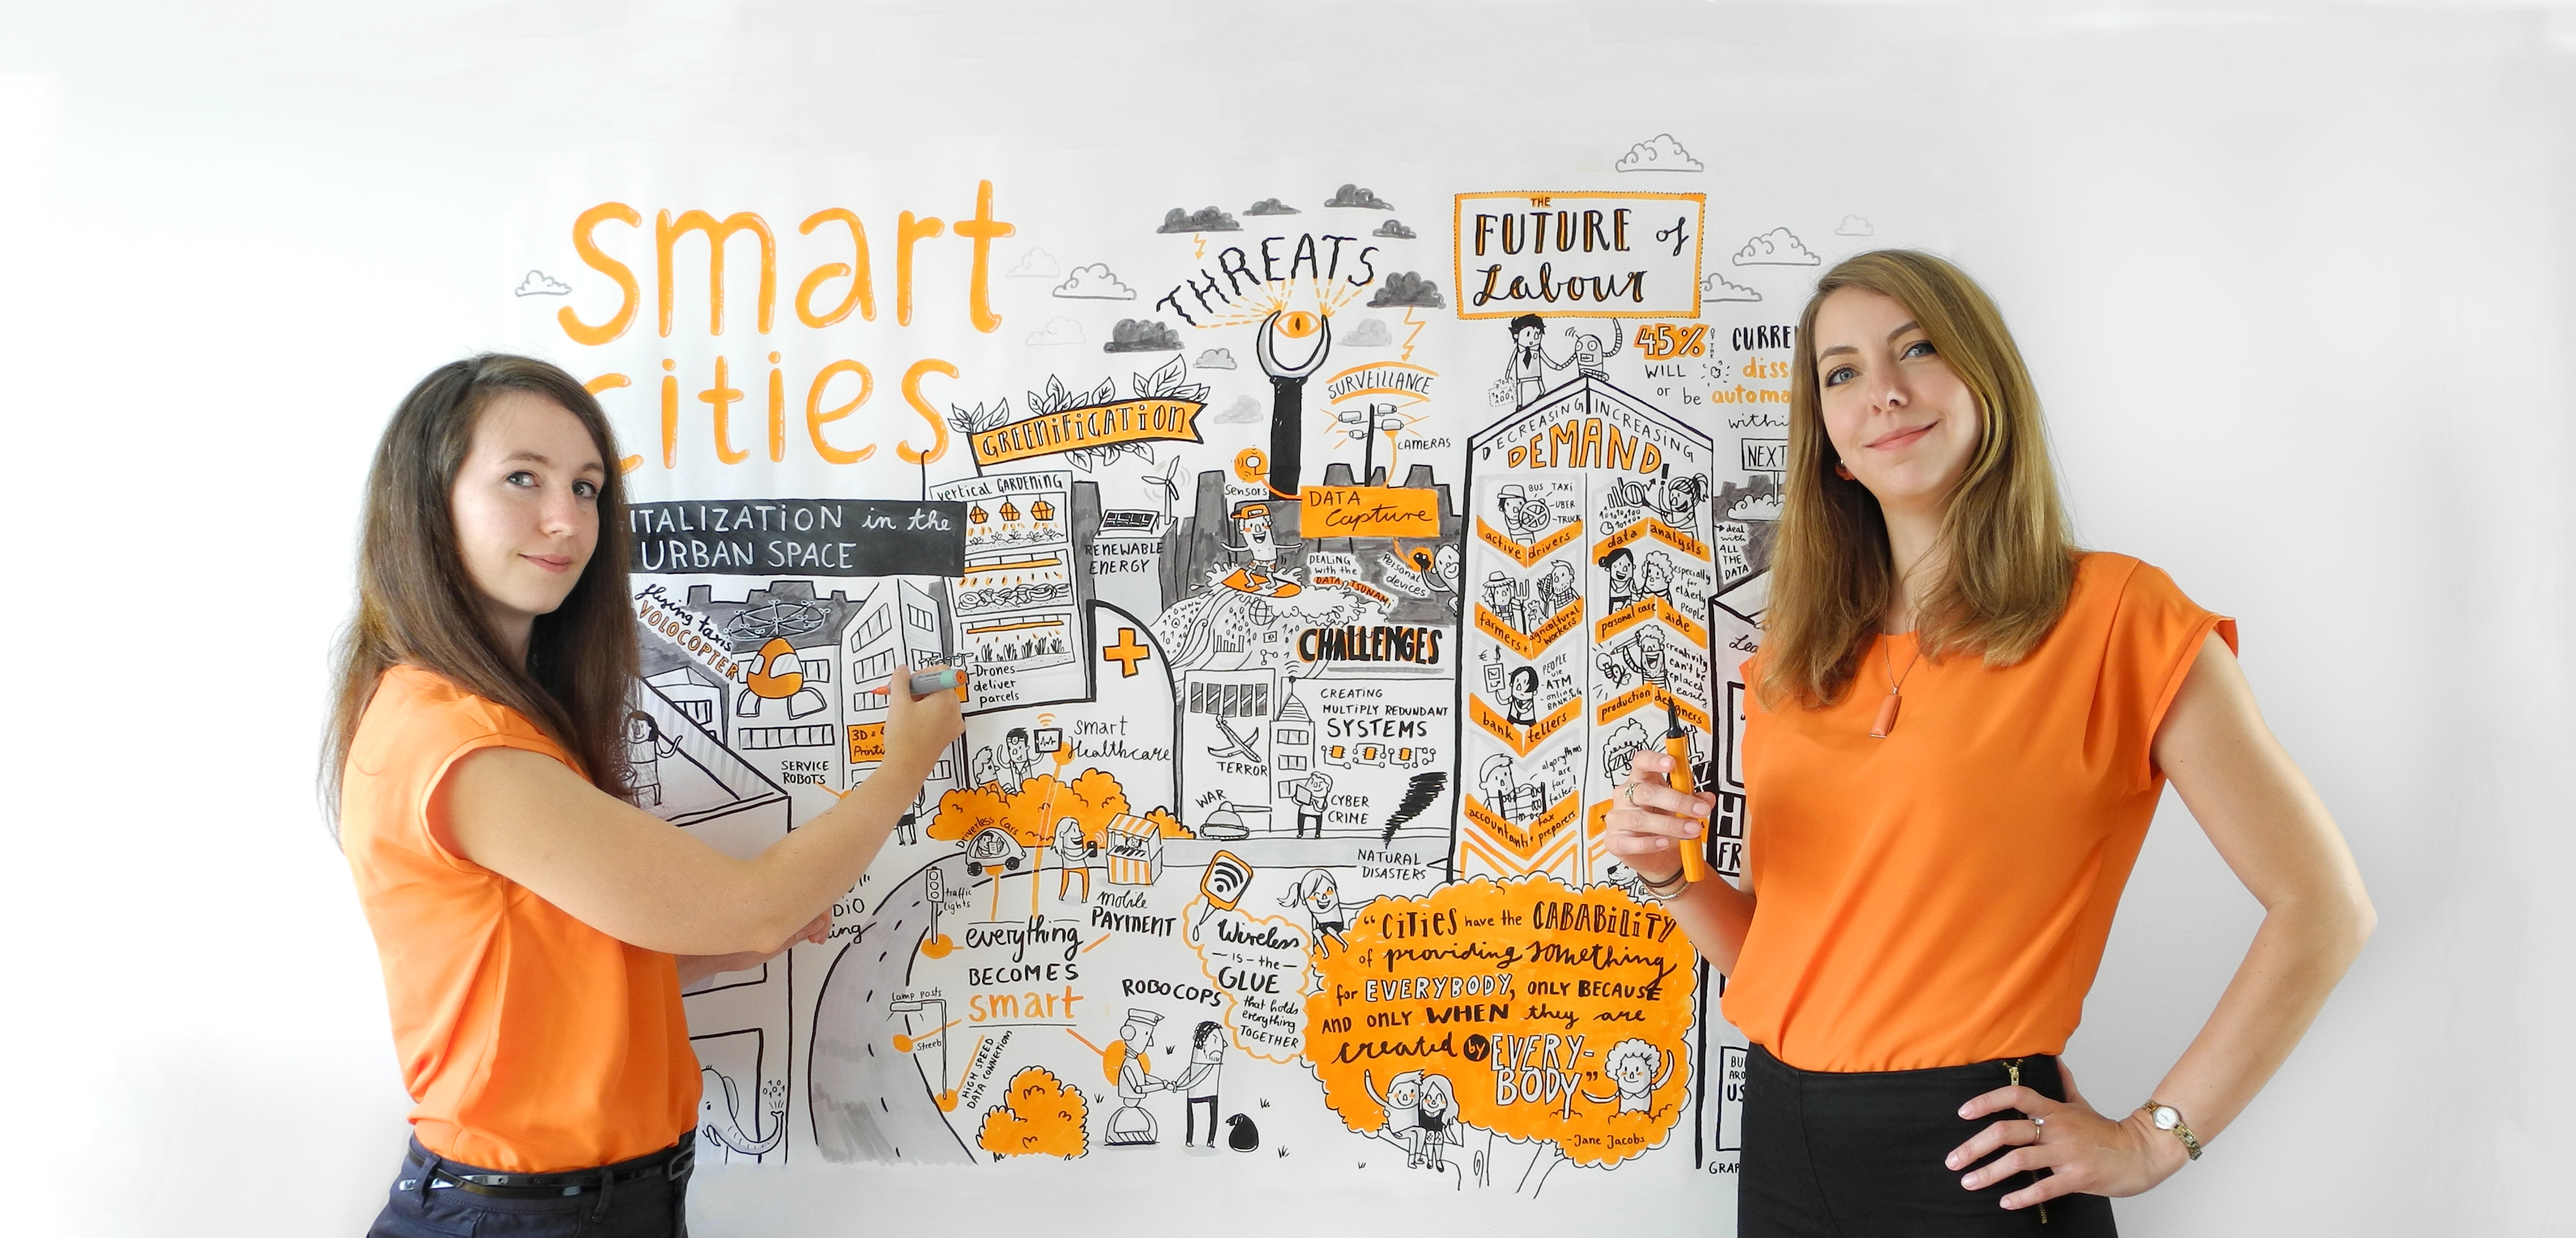 smart
cities
ITALIZATION in the
URBAN SPACE
flying taxis
VOLOCOPTER
SERVICE
ROBOTS
3D
Printi
GREENIFICATION
vertical GARDENING
RENEWABLE
ENERGY
Drones
deliver
parcels
smart
Healthcare
Driverless Cars
traffic
lights
mobile
PAYMENT
everything
BECOMES
smart
Lamp Posts
Streets
HIGH SPEED
DATA CONNECTION
ROBOCOPS
DIO
ing
THREATS
SURVEILLANCE
CAMERAS
Sensors
DATA
Capture
DEALING
with the
DATA TSUNAMI
Personal
devices
CHALLENGES
CREATING
MULTIPLY REDUNDANT
SYSTEMS
TERROR
WAR
CYBER
CRIME
NATURAL
DISASTERS
Wireless
- IS - the -
GLUE
that holds
everything
TOGETHER
THE
FUTURE of
Labour
45% OF THE CURRE
WILL diss
or be automa
withi
NEXT
DECREASING INCREASING
DEMAND!
BUS TAXI
UBER
TRUCK
active drivers
farmers + agricultural workers
PEOPLE
use
ATM
online
BANKING
bank tellers
algorythms
are
far
faster!
accountants + tax preparers
data analysts
especially
for
elderly
people
personal care aide
creativity
can't be
replaced
easily
production designers
deal
with
ALL
THE
DATA
Lea
H
FR
"CITIES have the CABABILITY
of providing something
for EVERYBODY, ONLY BECAUSE
AND ONLY WHEN they are
created by EVERY-
BODY"
-Jane Jacobs
BU
ARO
US
GRAP